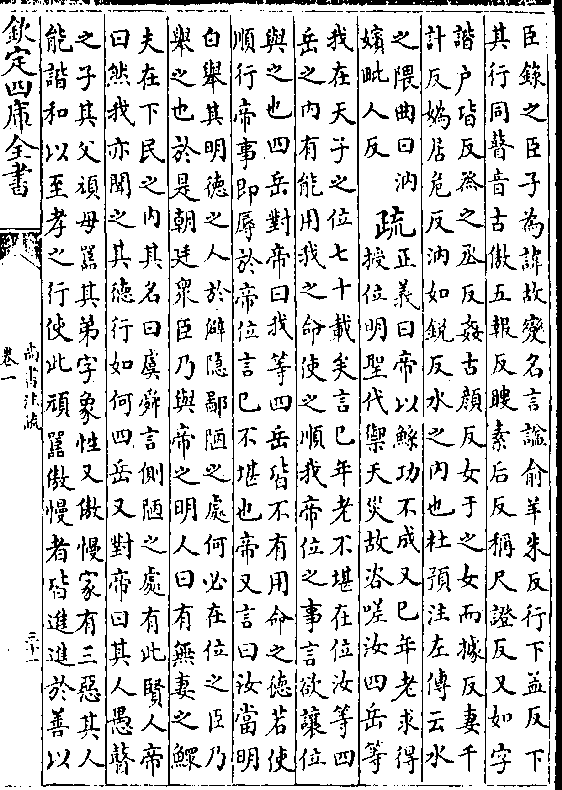 臣錄之臣子為諱故變名言諡俞羊朱反行下益反下
其行同瞽音古傲五報反瞍素后反稱尺證反又如字
諧户皆反烝之丞反姦古顔反女于之女而據反妻千
計反嬀居危反汭如銳反水之內也杜預注左傳云水
之隈曲曰汭
嬪毗人反
疏
正義曰帝以鯀功不成又已年老求得
授位明聖代禦天災故咨嗟汝四岳等
我在天子之位七十載矣言已年老不堪在位汝等四
岳之內有能用我之命使之順我帝位之事言欲讓位
與之也四岳對帝曰我等四岳皆不有用命之德若使
順行帝事即辱於帝位言已不堪也帝又言曰汝當明
白舉其明德之人於僻隱鄙陋之處何必在位之臣乃
舉之也於是朝廷衆臣乃與帝之明人曰有無妻之鰥
夫在下民之內其名曰虞舜言側陋之處有此賢人帝
曰然我亦聞之其德行如何四岳又對帝曰其人愚瞽
之子其父頑母嚚其弟字象性又傲慢家有三惡其人
能諧和以至孝之行使此頑嚚傲慢者皆進進於善以
欽定四庫全書
尚書注疏
卷一
三十一